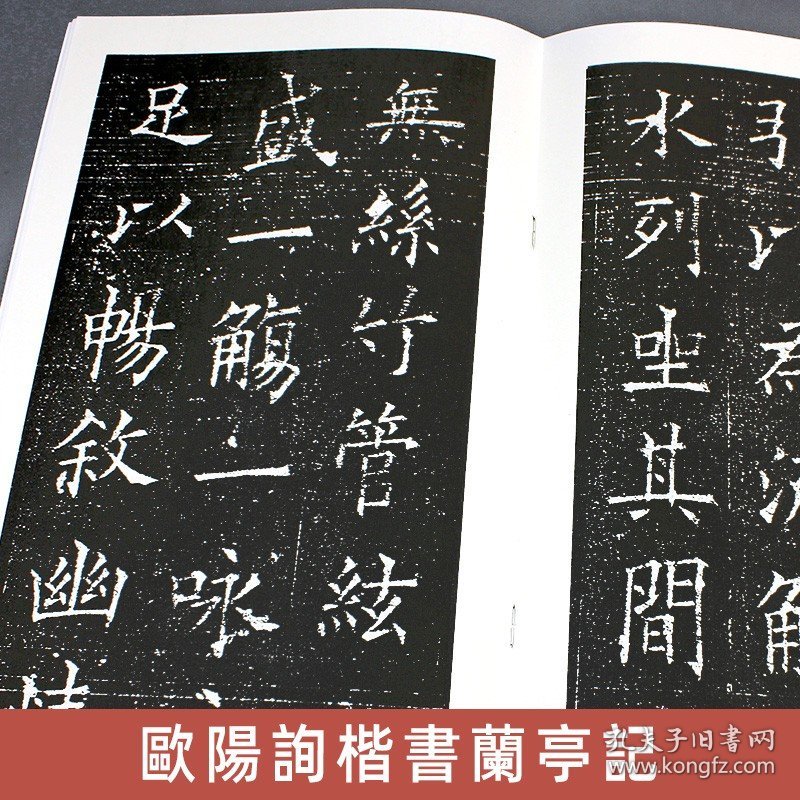 引以為流觴
水列坐其間
無絲竹管絃
盛一觴一咏
足以暢敘幽情
歐陽詢楷書蘭亭記
孔夫子旧书网
www.kongfz.com